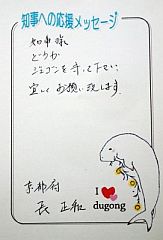 知事への応援メッセージ
知事様
どうか
ジュゴンを守って下さい
宜しくお願い致します
京都府
長 正和
I ❤ dugong